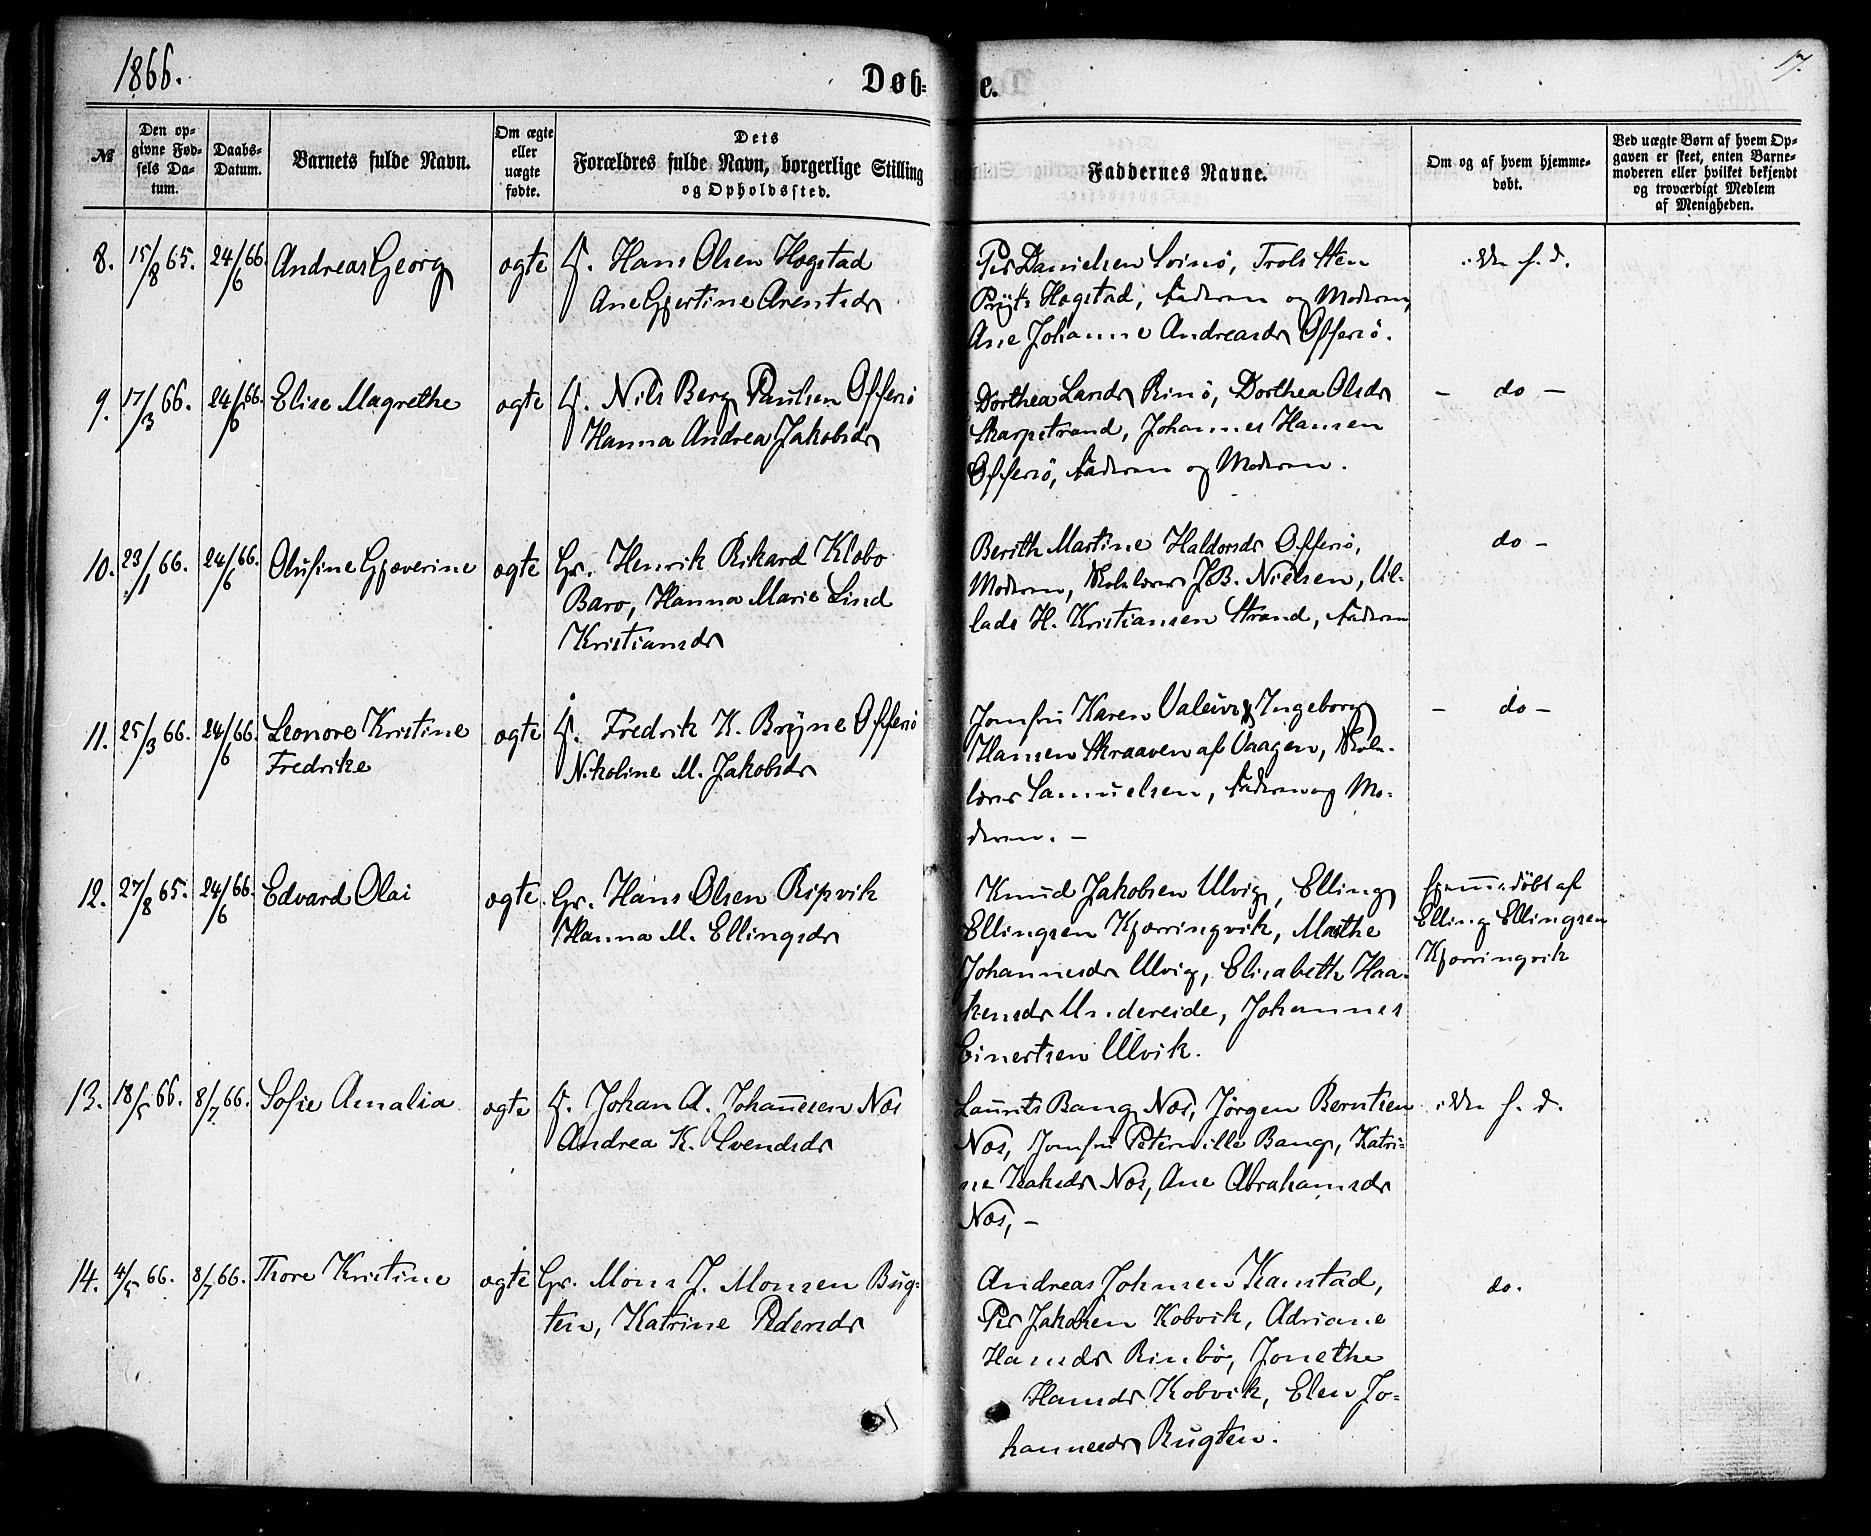 1866.
Døb-
e.
17.
№
Den op-
givne Fød-
sels Da-
tum.
Daabs-
Datum.
Barnets fulde Navn.
Om ægte
eller
uægte
fødte.
Dets
Forældres fulde Navn, borgerlige Stilling
og Opholdssted.
Faddernes Navne.
Om og af hvem hjemme-
døbt.
Ved uægte Børn af hvem Op-
gaven er skeet, enten Barne-
moderen eller hvilket bekjendt
og troværdigt Medlem
af Menigheden.
8. 15/8 65. 24/6 66. Andreas Georg ægte Hans Olsen Hogstad
Ane Gjertine Arentsdr
Per Danielsen Svinø, Trols Sten
Prÿtz Hogstad, Faderen og Moderen,
Ane Johanne Andreasdr Offersø.
ikke h. d.
9. 17/3 66. 24/6 66. Elise Magrethe ægte Nils Berg Paulsen Offersø
Hanna Andrea Jakobsdr
Dorthea Larsdr Rinø, Dorthea Olsdr
Skarpstrand, Johannes Hansen
Offersø, Faderen og Moderen.
– do –
10. 23/1 66. 24/6 66. Olufine Gjæverine ægte Gr. Henrik Rikard Klobo
Barø, Hanna Marie Lind
Kristiansdr
Berith Martine Haldorsdr Offersø,
Moderen, Skolelærer J.B. Nielsen, Ul-
lads H. Kristiansen Strand, Faderen
do –
11. 25/3 66. 24/6 66. Leonore Kristine
Fredrike
ægte Fredrik K. Brÿne Offersø
Nikoline M. Jakobsdr
Jomfru Karen Ingeborg
Hansen Skraaven af Vaagen, Skole-
lærer Samuelsen, Faderen og Mo-
deren. –
– do –
12. 27/8 65. 24/6 66. Edvard Olai ægte Gr. Hans Olsen Ripvik
Hanna M. Ellingsdr
Knud Jakobsen Ulvig, Elling
Ellingsen Kjærringvik, Marthe
Johannesdr Ulvig, Elisabeth Haa-
kensdr Undereide, Johannes
Einertsen Ulvik.
hjemmedøbt af
Elling Ellingsen
Kjærringvik
13. 18/5 66. 8/7 66. Sofie Amalia ægte Johan A. Johannesen Næs
Andrea K. Svendsdr
Laurits Bang Næs, Jørgen Berntsen
Næs, Jomfru Peternille Bang, Katri-
ne Isaksdr Næs, Ane Abrahamsdr
Næs, –
ikke h. d.
14. 4/5 66. 8/7 66. Thore Kristine ægte Gr. Mons J. Monsen Bug-
ten, Katrine Pedersdr
Andreas Johnsen Kanstad,
Per Jakobsen Kobvik, Adriane
Hansdr Rinbø, Jonethe
Hansdr Kobvik, Elen Jo-
hannesdr Bugten.
do.